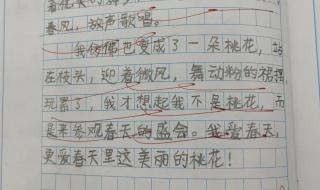 春风，放声歌唱。
我仿佛也变成了一朵桃花，站
在枝头，迎着微风，舞动粉的裙摆，
玩累了，我才想起我不是桃花，而
是来参观春天的盛会。我爱春天，
更爱春天里这美丽的桃花！